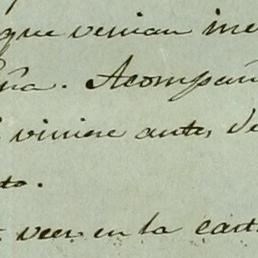 que venian
ña. Acompañ
viniere antes de
to.
veer en la cart